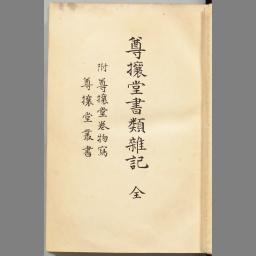 尊攘堂書類雜記 全
附 尊攘堂卷物寫
尊攘堂叢書